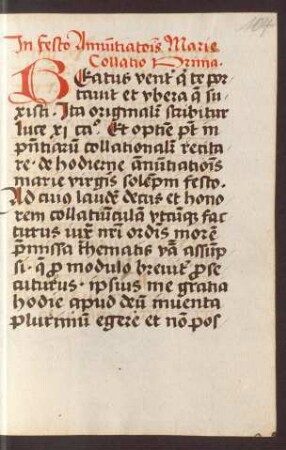 In festo Annūtiatōis Marie
Collatio Prima.
BEatus vent̄ q̄ te por
tauit et vbera q̄ su
xisti. Ita originalit̄ scribitur
luce xi caº. Et optīe pn̄t in
pn̄tiarū collationalit̄ recita
re. de hodierne annūtiatōis
marie virgīs solēpni festo.
Ad cuiꝰ laudē decus et hono
rem collatiūculā vtcūqꝫ fac
turus iux̄ nr̄i ordīs morē
pr̄missa thematis v̄ba assūp
si. q̄ p̄ modulo breuit̄ p̄se
cuturus. ipsius me gratia
hodie apud deū inuenta
plurimū egere et nō pos